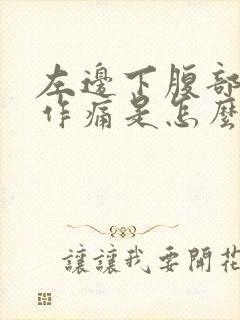 左邊下腹部
作痛是怎麼
讓讓我要開花